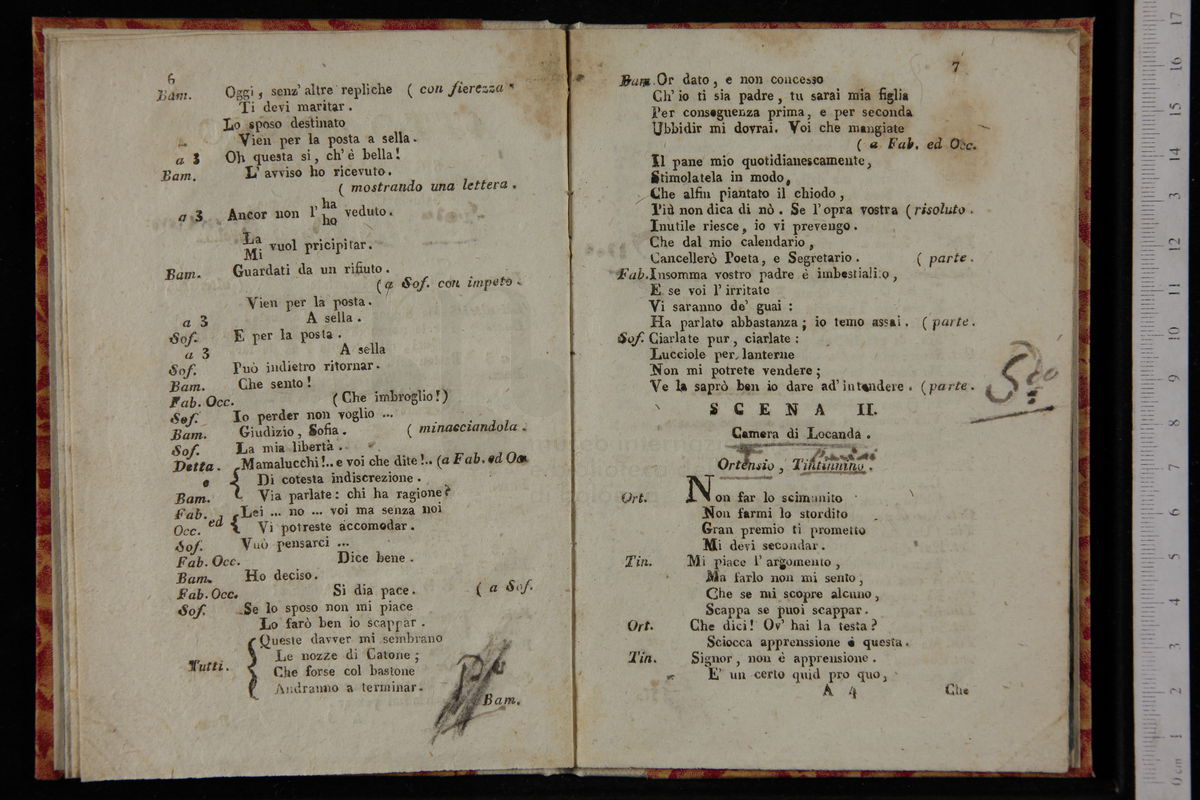 6
Bam. Oggi, senz' altre repliche ( con fierezza
Ti devi maritar.
Lo sposo destinato
Vien per la posta a sella.
a 3 Oh questa si, ch' è bella!
Bam. L' avviso ho ricevuto.
( mostrando una lettera.
a 3 Ancor non l' ha veduto.
ho
La vuol pricipitar.
Mi
Bam. Guardati da un rifiuto.
( a Sof. con impeto.
Vien per la posta.
a 3 A sella.
Sof. E per la posta.
a 3 A sella
Sof. Può indietro ritornar.
Bam. Che sento!
Fab. Occ. ( Che imbroglio!)
Sof. Io perder non voglio ...
Bam. Giudizio, Sofia. ( minacciandola.
Sof. La mia libertà.
Detta. Mamalucchi!.. e voi che dite!.. (a Fab. ed Occ
e Di cotesta indiscrezione.
Bam. Via parlate: chi ha ragione?
Fab. ed Lei ... no ... voi ma senza noi
Occ. Vi potreste accomodar.
Sof. Vuò pensarci ...
Fab. Occ. Dice bene.
Bam. Ho deciso.
Fab. Occ. Si dia pace. ( a Sof.
Sof. Se lo sposo non mi piace
Lo farò ben io scappar.
Queste davver mi sembrano
Le nozze di Catone;
Tutti. Che forse col bastone
Andranno a terminar.
Bam.
7
Bam. Or dato, e non concesso
Ch' io ti sia padre, tu sarai mia figlia
Per conseguenza prima, e per seconda
Ubbidir mi dovrai. Voi che mangiate
( a Fab. ed Occ.
Il pane mio quotidianescamente,
Stimolatela in modo,
Che alfin piantato il chiodo,
Più non dica di nò. Se l' opra vostra (risoluto.
Inutile riesce, io vi prevengo.
Che dal mio calendario,
Cancellerò Poeta, e Segretario. ( parte.
Fab. Insomma vostro padre è imbestialito,
E se voi l' irritate
Vi saranno de' guai:
Ha parlato abbastanza; io temo assai. ( parte.
Sof. Ciarlate pur, ciarlate:
Lucciole per lanterne
Non mi potrete vendere;
Ve la saprò ben io dare ad' intendere. (parte.
SCENA II.
Camera di Locanda.
Ortensio, Tintinnino.
Ort. Non far lo scimunito
Non farmi lo stordito
Gran premio ti prometto
Mi devi secondar.
Tin. Mi piace l' argomento,
Ma farlo non mi sento,
Che se mi scopre alcuno,
Scappa se puoi scappar.
Ort. Che dici! Ov' hai la testa?
Sciocca apprenssione è questa.
Tin. Signor, non è apprensione.
E' un certo quid pro quo,
A 4 Che
17
16
15
14
13
12
11
10
9
8
7
6
5
4
3
2
1
0 cm